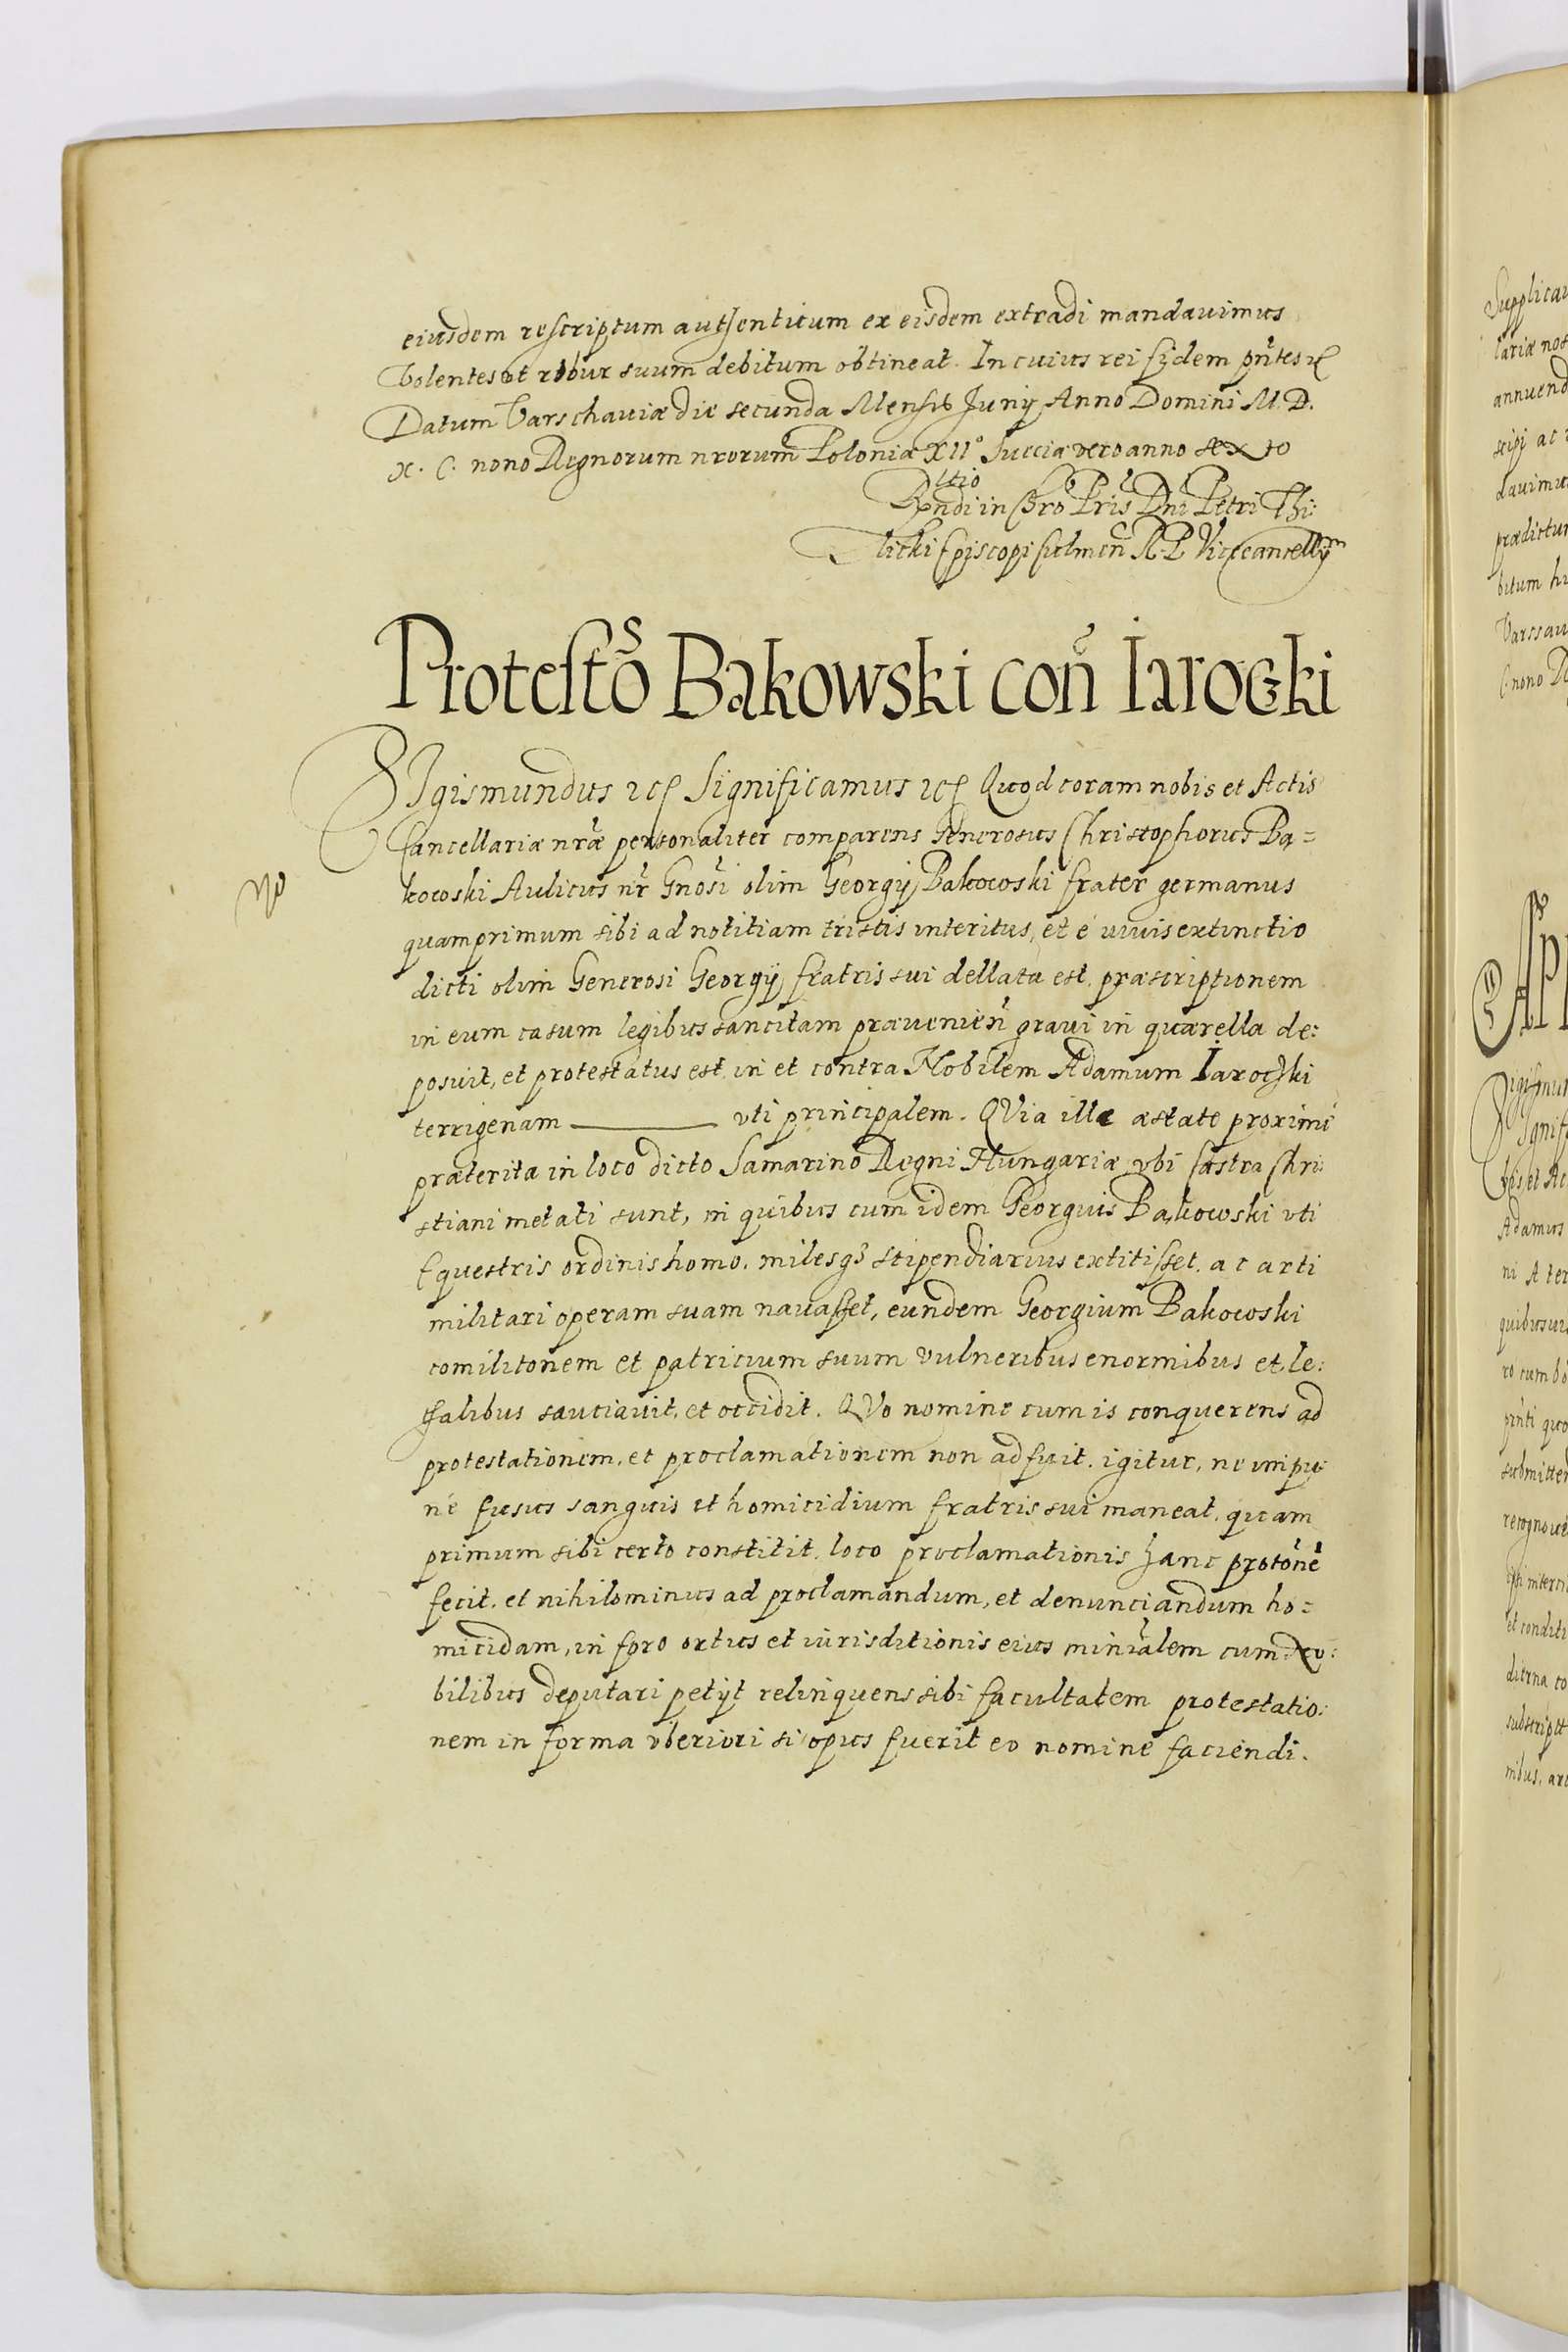 eiusdem rescriptum authenticum ex eisdem extradi mandauimus
Volentes ut robur suum debitum obtineat. In cuius rei fidem pñtes
Datum Varschauiæ die secunda Mensis Junÿ Anno Domini M.D.
X.C. nono Regnorum nrorum Poloniæ XII° Sueciæ vero anno sexto
Rndi in Chro Pris Dni Petri Thi:
licki Episcopi Culmeñ R.P. Vicecancellÿ
Protestõ Bąkowski coñ Iarocki
SIgismundus etc. Significamus etc. Quod coram nobis et Actis
Cancellariæ nræ personaliter comparens Generosus Christophorus Bą=
kowski Aulicus nr Gnosi olim Georgÿ Bakowski frater germanus
quamprimum sibi ad notitiam tristis interitus, et é viuis extinctio
dicti olim Generosi Georgÿ fratris sui dellata est, præscriptionem
in eum casum legibus sancitam præuenieñ graui in quærella de:
posuit, et protestatus est in et contra Nobilem Adamum Iarocki
terrigenam ——— vti principalem. QVia ille æstate proximé
præterita in loco dicto Samarino Regni Hungariæ vbi Castra Chri:
stiani metati sunt, in quibus cum idem Georgius Bąkowski vti
Equestris ordinis homo, milesq3 stipendiarius extitisset, ac arti
militari operam suam nauasset, eundem Georgium Bakowski
comilitonem et patricium suum vulneribus enormibus et le:
thalibus sauciauit, et occidit. QVo nomine cum is conquerens ad
protestationem, et proclamationem non adfuit, igitur, ne impu
né fusus sanguis et homicidium fratris sui maneat, quam
primum sibi certo constitit, loco proclamationis hanc protõnẽ
fecit, et nihilominus ad proclamandum, et denunciandum ho=
micidam, in foro ortus et iurisditionis eius minialem cum No:
bilibus deputari petÿt relinquens sibi facultatem protestatio:
nem in forma vberiori si opus fuerit eo nomine faciendi.